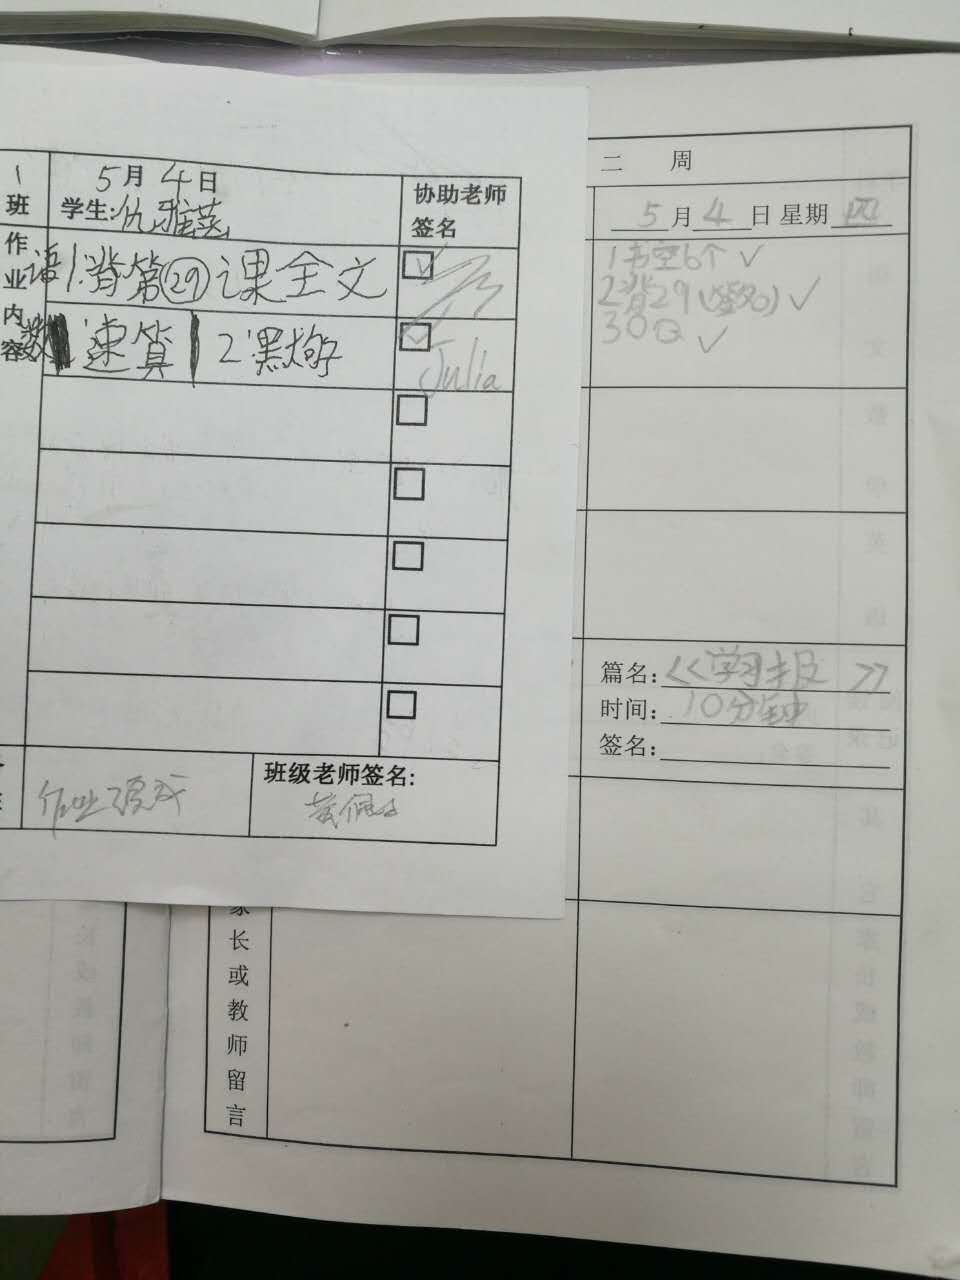 1
班
5月4日
学生:仇雅
协助老师
签名
作
业
内
容
语 1.背第㉙课全文
数 速算 2
Julia
作业
班级老师签名:
黄佩
二 周
5月4日 星期四
1书空6个 ✓
2背29 ✓
3 ✓
篇名:《学习报》
时间:10分钟
签名:
家
长
或
教
师
留
言